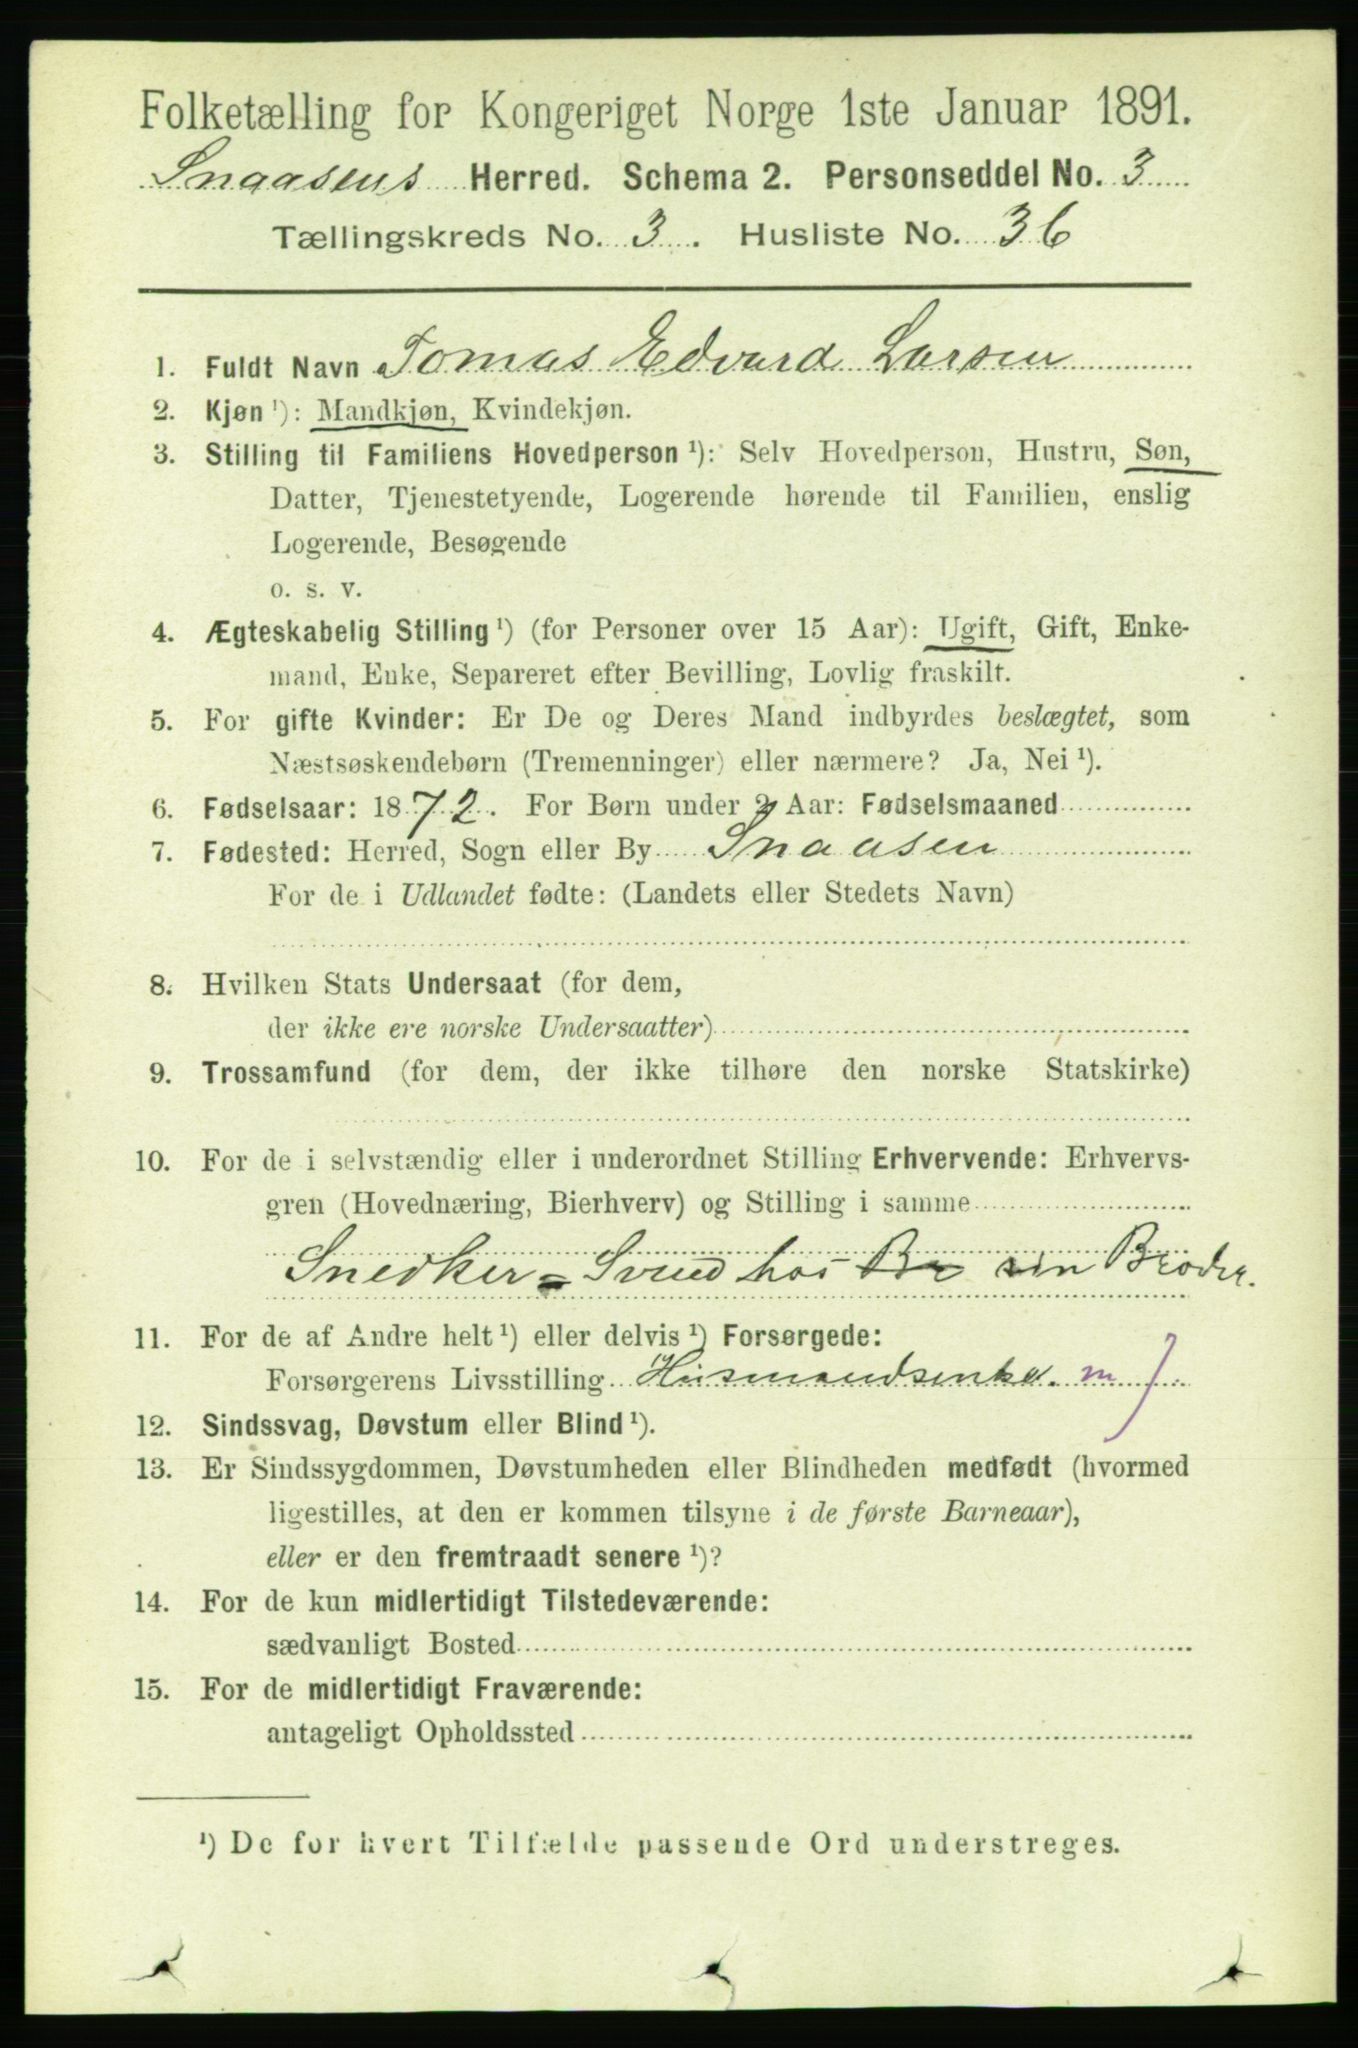 Folketælling for Kongeriget Norge 1ste Januar 1891.
Snaasens Herred. Schema 2. Personseddel No. 3
Tællingskreds No. 3. Husliste No. 36
1. Fuldt Navn Tomas Edvard Larsen
2. Kjøn ¹): Mandkjøn, Kvindekjøn.
3. Stilling til Familiens Hovedperson ¹): Selv Hovedperson, Hustru, Søn,
Datter, Tjenestetyende, Logerende hørende til Familien, enslig
Logerende, Besøgende
o. s. v.
4. Ægteskabelig Stilling ¹) (for Personer over 15 Aar): Ugift, Gift, Enke-
mand, Enke, Separeret efter Bevilling, Lovlig fraskilt.
5. For gifte Kvinder: Er De og Deres Mand indbyrdes beslægtet, som
Næstsøskendebørn (Tremenninger) eller nærmere? Ja, Nei ¹).
6. Fødselsaar: 1872. For Børn under 2 Aar: Fødselsmaaned
7. Fødested: Herred, Sogn eller By Snaasen
For de i Udlandet fødte: (Landets eller Stedets Navn)
8. Hvilken Stats Undersaat (for dem,
der ikke ere norske Undersaatter)
9. Trossamfund (for dem, der ikke tilhøre den norske Statskirke)
10. For de i selvstændig eller i underordnet Stilling Erhvervende: Erhvervs-
gren (Hovednæring, Bierhverv) og Stilling i samme
Snedker = Svend hos Br sin Broder.
11. For de af Andre helt ¹) eller delvis ¹) Forsørgede:
Forsørgerens Livsstilling Husmandsenke. m J
12. Sindssvag, Døvstum eller Blind ¹).
13. Er Sindssygdommen, Døvstumheden eller Blindheden medfødt (hvormed
ligestilles, at den er kommen tilsyne i de første Barneaar),
eller er den fremtraadt senere ¹)?
14. For de kun midlertidigt Tilstedeværende:
sædvanligt Bosted
15. For de midlertidigt Fraværende:
antageligt Opholdssted
¹) De for hvert Tilfælde passende Ord understreges.